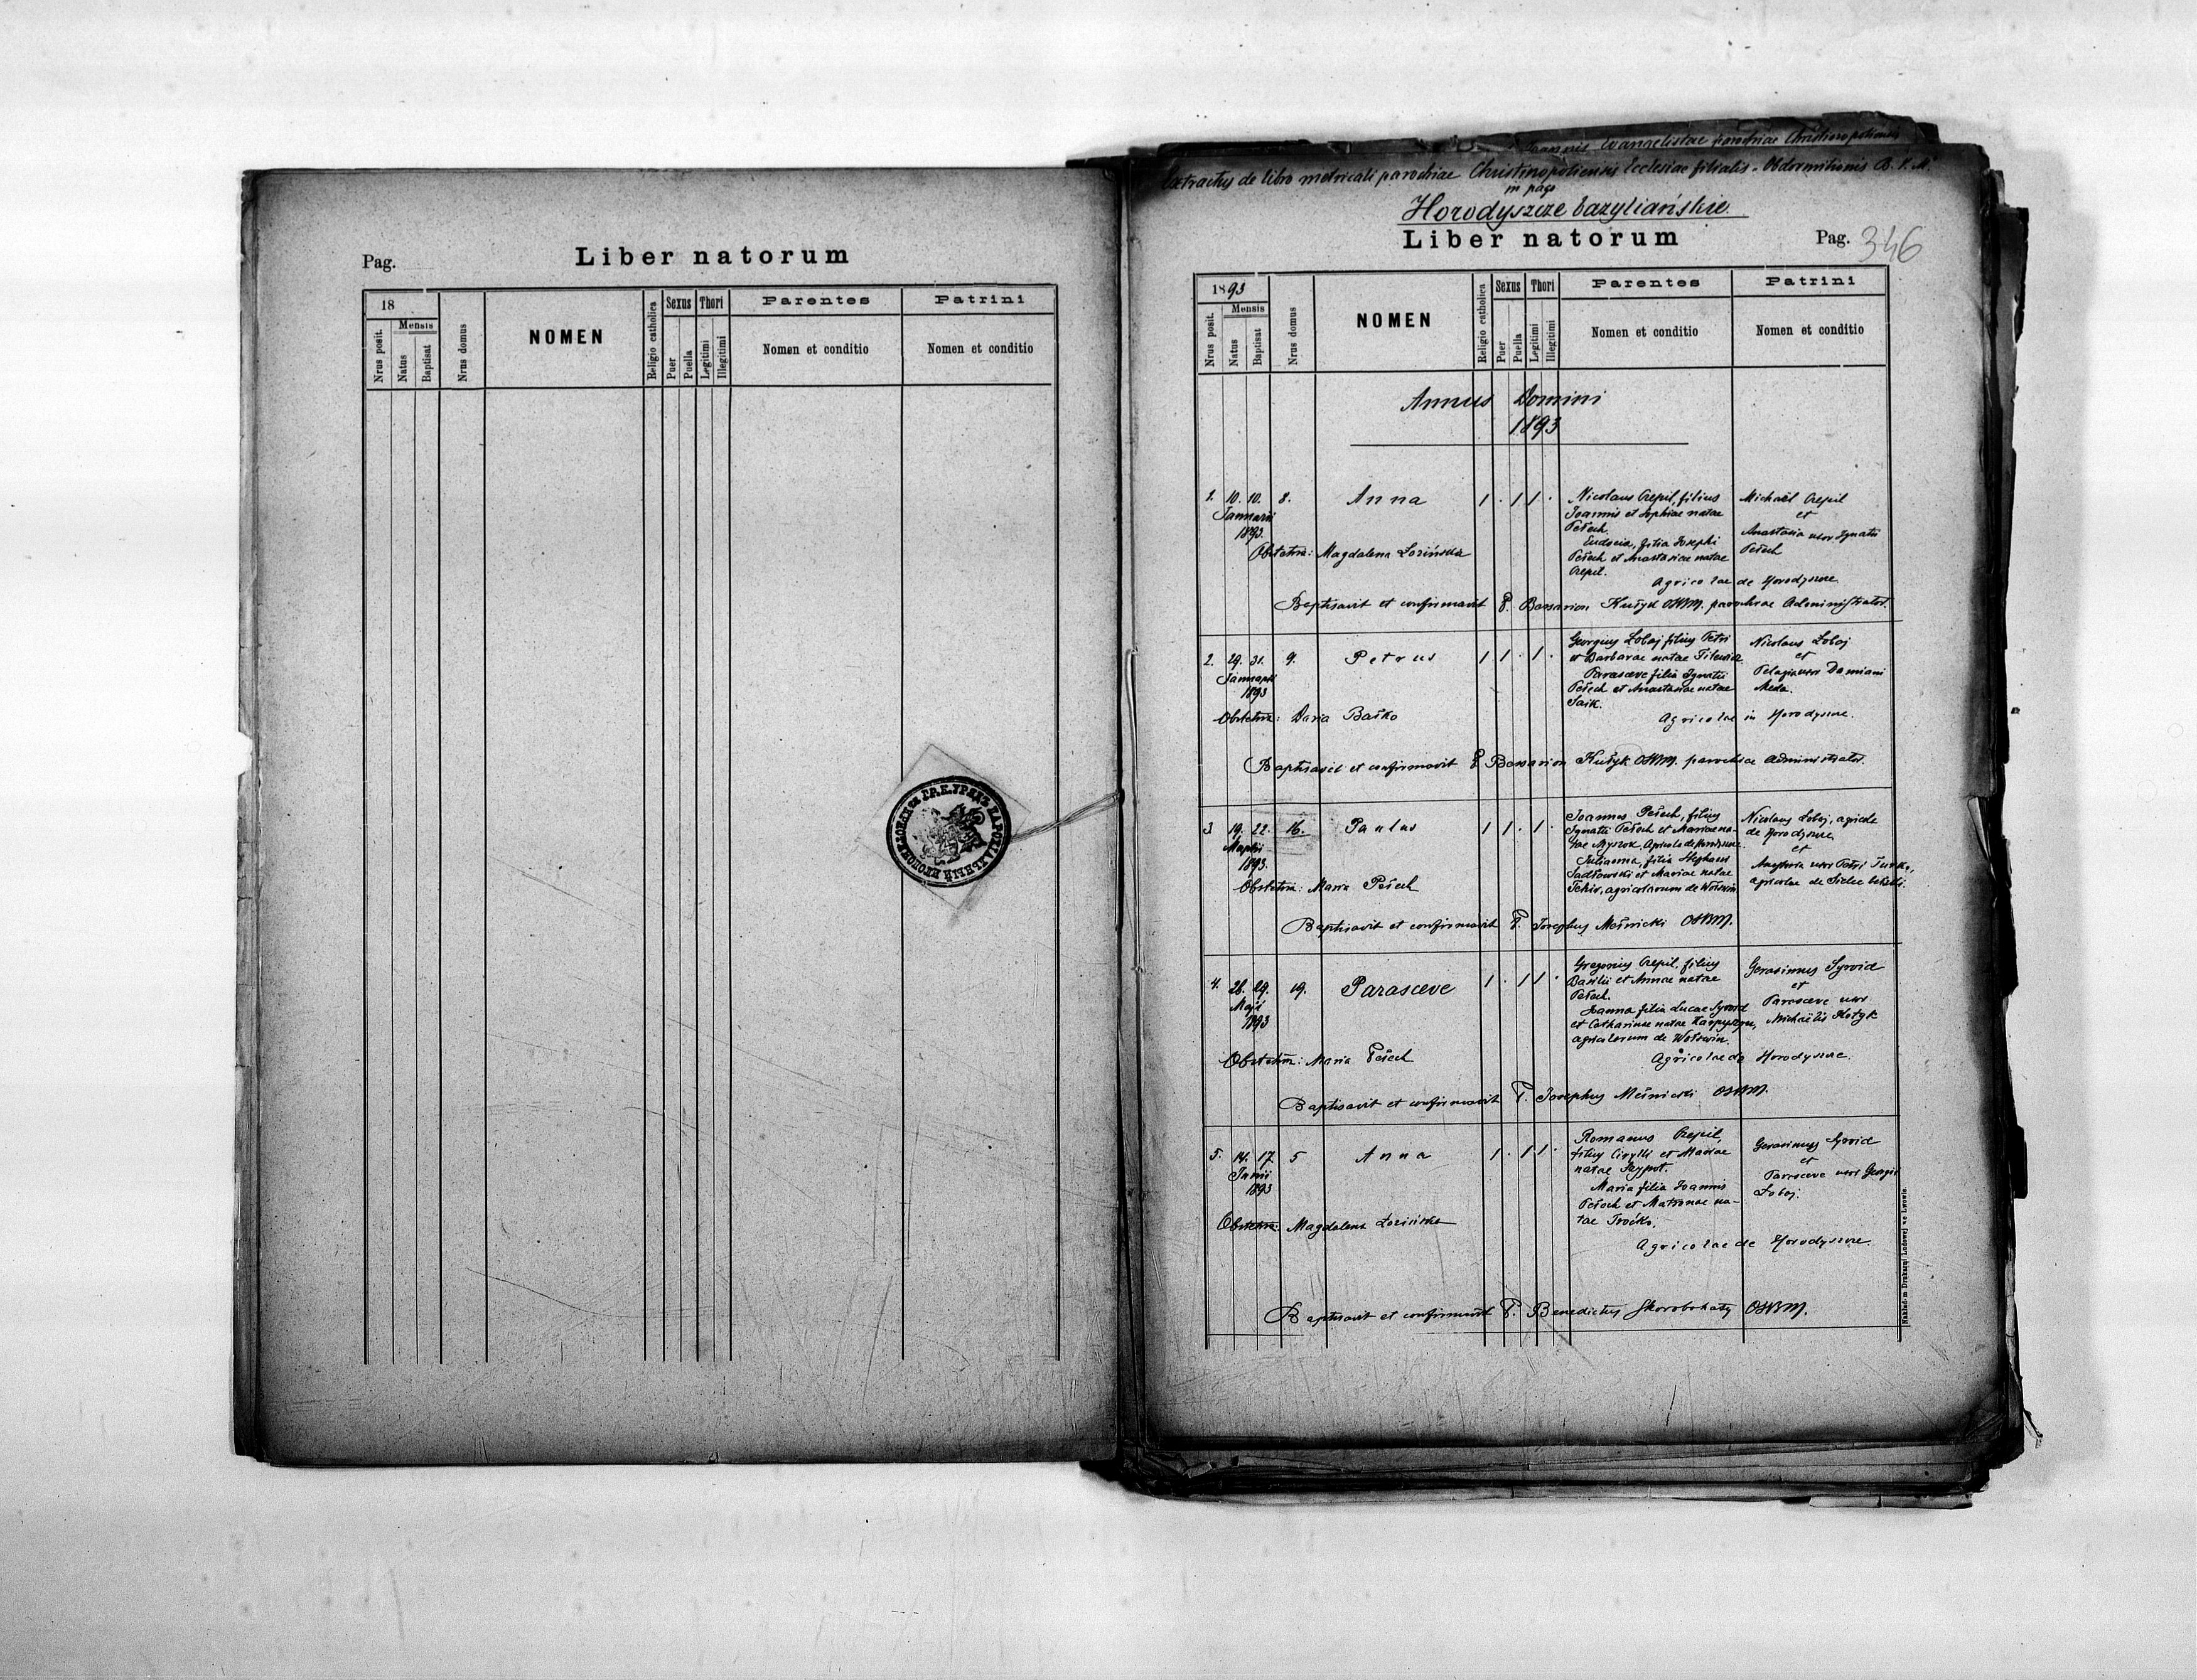 Pag.
Liber natorum
18
Mensis
Nrus posit.
Natus
Baptisat
Nrus domus
NOMEN
Religio catholica
Sexus
Puer
Puella
Thori
Legitimi
Illegitimi
Parentes
Nomen et conditio
Patrini
Nomen et conditio
Joannis Evangelistae parochiae Christinopoliensis
Extractus de libro metricali parochiae Christinopoliensis Ecclesiae filialis - Obdormitionis B. V. M.
in pago
Horodyszcze bazyliańskie.
Liber natorum
Pag. 346
1893
Mensis
Nrus posit.
Natus
Baptisat
Nrus domus
NOMEN
Religio catholica
Sexus
Puer
Puella
Thori
Legitimi
Illegitimi
Parentes
Nomen et conditio
Patrini
Nomen et conditio
Annus Domini
1893
1. 10. 10. 8. Anna 1 . 1 1 .
Januarii
1893.
Nicolaus Crepil, filius
Joannis et Sophiae natae
Pełech.
Eudocia, filia Josephi
Pełech et Anastasiae natae
Crepil.
Michaël Crepil
et
Anastasia uxor Ignatii
Pełech
Obstetrix: Magdalena Łozińska
Agricolae de Horodyszcze
Baptisavit et confirmavit P. Bessarion OSBM. parochiae Administrator.
2. 29. 31. 9. Petrus 1 1 . 1 .
Januarii
1893
Georgius Łobaj filius Petri
et Barbarae natae
Parasceve filia Ignatii
Pełech et Anastasiae natae
Saik.
Nicolaus Łobaj
et
Pelagia uxor Damiani
Meda.
Obstetrix: Daria Bałko
Agricolae in Horodyszcze.
Baptisavit et confirmavit P. Bessarion OSBM. parochiae Administrator.
3 19. 22. 16. Paulus 1 1 . 1 .
Martii
1893.
Joannes Pełech, filius
Ignatii Pełech et Mariae na-
tae Myszok, Agricola de Horodyszcze.
Julianna, filia Stephani
Sadłowski et Mariae natae
agricolarum de Wolswin
Nicolaus Łobaj, agricola
de Horodyszcze
et
uxor Petri
agricolae de Sielec
Obstetrix: Maria Pełech
Baptisavit et confirmavit P. Josephus OSBM.
4. 28. 29. 19. Parasceve 1 . 1 1 .
Maji
1893
Gregorius Crepil, filius
Basilii et Annae natae
Pełech.
Joanna filia Lucae Syrvid
et Catharinae natae
agricolarum de Wolswin.
Gerasimus Syrvid
et
Parasceve uxor
Michaëlis Kotyk
Obstetrix: Maria Pełech
Agricolae de Horodyszcze.
Baptisavit et confirmavit P. Josephus OSBM.
5. 14. 17 5 Anna 1 . 1 1 .
Junii
1893
Romanus Crepil,
filius Cirylli et Mariae
natae
Maria filia Joannis
Pełech et Matronae na-
tae
Gerasimus Syrvid
et
Parasceve uxor Georgii
Łobaj.
Obstetrix: Magdalena Łozińska
Agricolae de Horodyszcze.
Baptisavit et confirmavit P. Benedictus Skorobohaty OSBM.